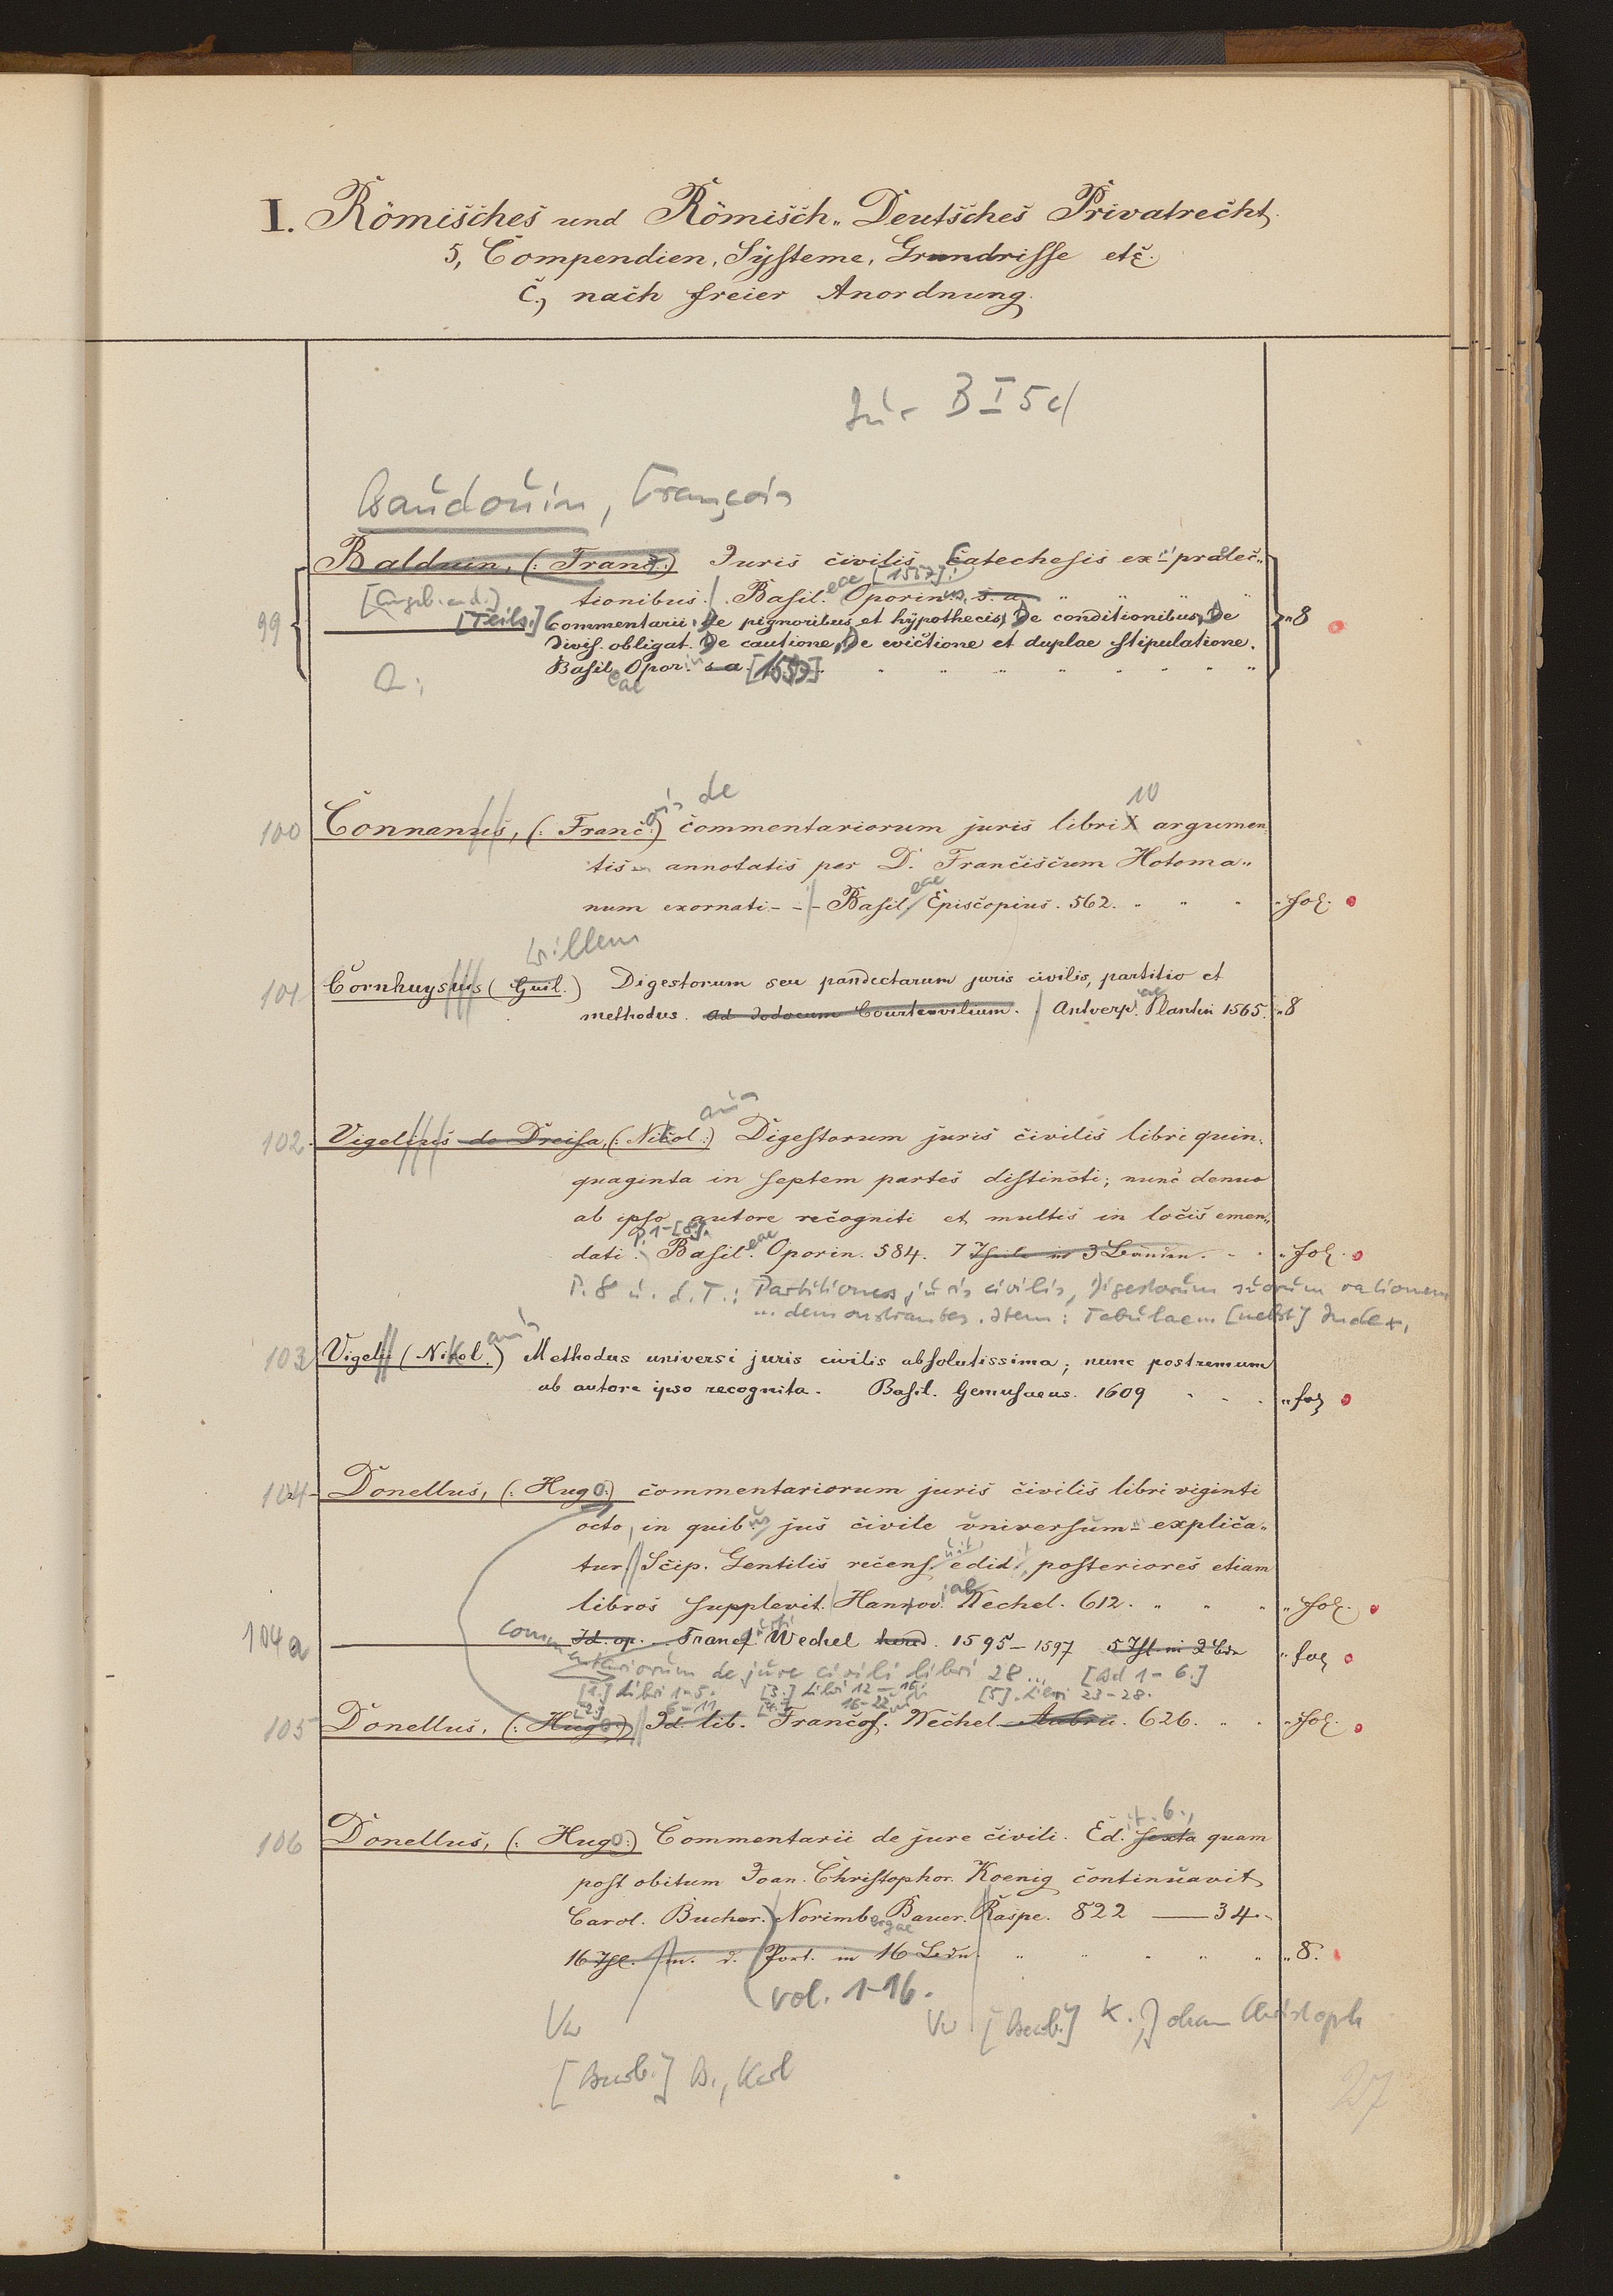 I. Römisches und Römisch-Deutsches Privatrecht.
5, Compendien, Systeme, Grundrisse etc.
c., nach freier Anordnung.
Jur B I 5 c/
Baudouin, François
Balduin, (: Franz:) Juris civilis Catechesis ex praelec-
tionibus. Basil.eae [1557]: Oporinus. s. a.
99 [Teils.] Commentarii: De pignoribus et hypothecis, De conditionibus, De „8
divis. obligat. De cautione, De evictione et duplae stipulatione.
Basileae Oporin. s a [1557]
de 10
100 Connanus, (: Franç.ois) commentariorum juris libri X argumen
tis annotatis per D. Franciscum Hotoma„
num exornati - - - Basil.eae Episcopius. 562. „fol.
Willem
101 Cornhuysius (Guil.) Digestorum seu pandectarum juris civilis, partitio et
methodus. ad Jodocum Courtevilium. Antverp.iae Plantin 1565. „8
102. Vigelius de Dreisa, (: Nikol:)aus Digestorum juris civilis libri quin.
quaginta in septem partes distincti; nunc denuo
ab ipso autore recogniti et multis in locis emen„
P. 1-[8].
dati. Basil.eae Oporin. 584. 7 Theile in 3 Bänden. „fol.
P. 8 u. d. T.: Partitiones juris civilis, Digestorum suorum rationem
... demonstrantes. Item: Tabulae... [nebst] Index.
103 Vigeli (Nikol.)aus Methodus universi juris civilis absolutissima; nunc postremum
ab autore ipso recognita. Basil. Gemusaeus. 1609 „fol
104 Donellus, (: Hugo:) commentariorum juris civilis libri viginti
octo, in quibus jus civile universum explica„
tur Scip. Gentilis recensuit, edidit, posteriores etiam
libros supplevit. Hannov.iae Wechel. 612. „fol.
104a Id. op. Francf. Wechel hered. 1595-1597 5 Thl. in 2 Bdn „fol
Commentariorum de jure civili libri 28 ... [Bd 1-6.]
[1.] Libri 1-5. [3.] Libri 12-15. [5]. Libri 23-28.
[2.] 6-11 [4.] 16-22
105 Donellus, (: Hugo:) Id. lib. Francof. Wechel Aubrii. 626. „fol.
106 Donellus, (: Hugo:) Commentarii de jure civili. Ed.it. 6., sexta quam
post obitum Joan. Christophor. Koenig continuavit
Carol. Bucher. Norimbergae Bauer. Raspe. 822 — 34.
16 Thl. m. d. Port. in 16 Bdn. „8.
vol. 1-16.
Vw Vw [Bearb.] K., Johann Christoph
[Bearb.] B., Karl
27